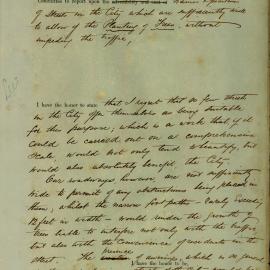 Committee to report upon the
of Streets in the City which are sufficiently wide
to allow of the Planting of Trees without
impeding the traffic,
I have the honor to state that I regret that so few streets
in the City offer themselves as being suitable
for this purpose, which is a work that if it
could be carried out on a comprehensive
scale would not only tend to beautify, but
would also absolutely benefit the City.
Our roadways however are not sufficiently
wide to permit of any obstructions being placed in
them, whilst the narrow foot paths - rarely exceeding
12 feet in width - would under the growth of
trees liable to interfere not only with the traffic
but also with the convenience of residents in the
street. The presence of awnings, which is so general
I have the honor to be,